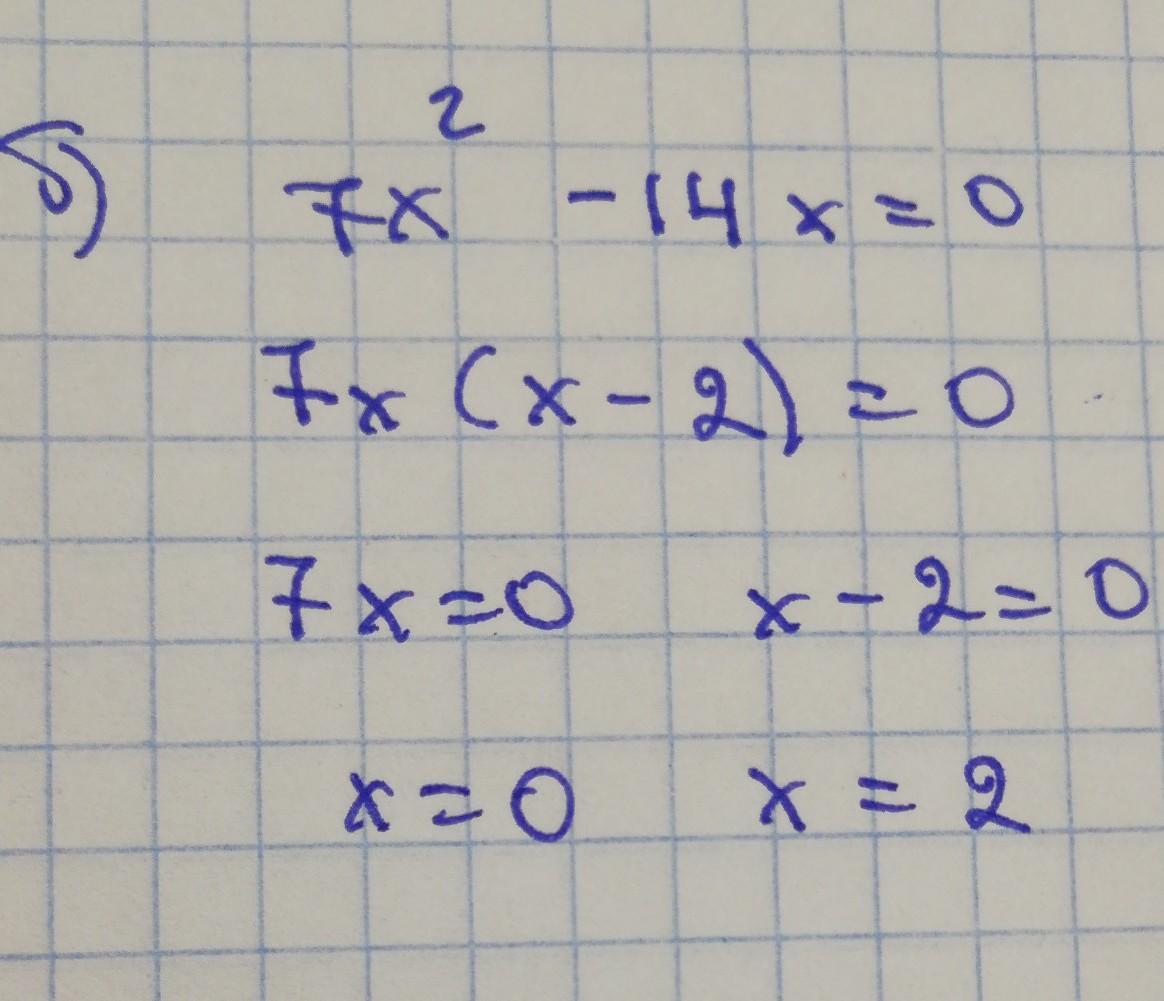 б) 7x² - 14x = 0
7x (x - 2) = 0
7x = 0 x - 2 = 0
x = 0 x = 2